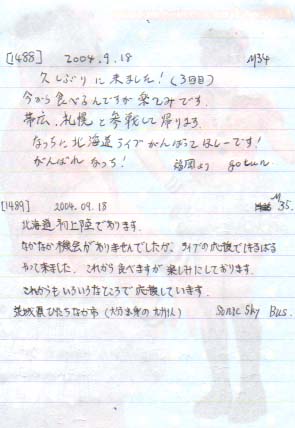 [1488] 2004.9.18 M34
久しぶりに来ました！(3回目)
今から食べるんですが楽しみです。
帯広、札幌と参戦して帰ります。
なっちに北海道ライブがんばってほしーです！
がんばれ なっち！ 福岡より gotun
[1489] 2004.09.18 M35.
北海道初上陸であります。
なかなか機会がありませんでしたが、ライブの応援ではるばる
やって来ました。これから食べますが楽しみにしております。
これからもいろいろなところで応援しています。
茨城県ひたちなか市 (大分出身の九州人) Sonic Sky Bus.